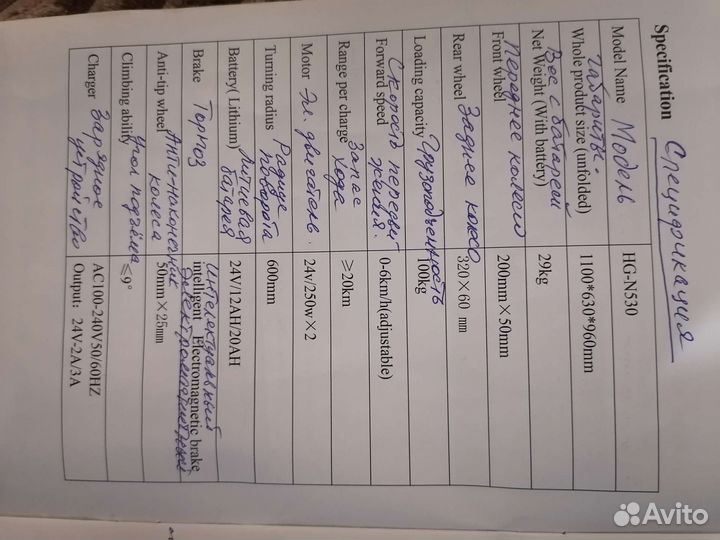 Specification Спецификация
Model Name Модель HG-N530
Габариты.
Whole product size (unfolded) 1100*630*960mm
Вес с батареей
Net Weight (With battery) 29kg
Переднее колесо
Front wheel 200mm×50mm
Rear wheel Заднее 320×60 mm
Грузоподъемность
Loading capacity 100kg
Скорость
Forward speed 0-6km/h(adjustable)
Запас
Range per charge хода ≥20km
Motor Эл. двигатель. 24v/250w×2
Радиус
Turning radius поворота 600mm
Литиевая
Battery( Lithium) батарея 24V/12AH/20AH
Интелектуальный
Brake Тормоз intelligent Electromagnetic brake
Электромагнитный
Anti-tip wheel колеса 50mm×25mm
Угол подъёма
Climbing ability ≤9°
Charger Зарядное AC100-240V50/60HZ
устройство Output: 24V-2A/3A
Avito